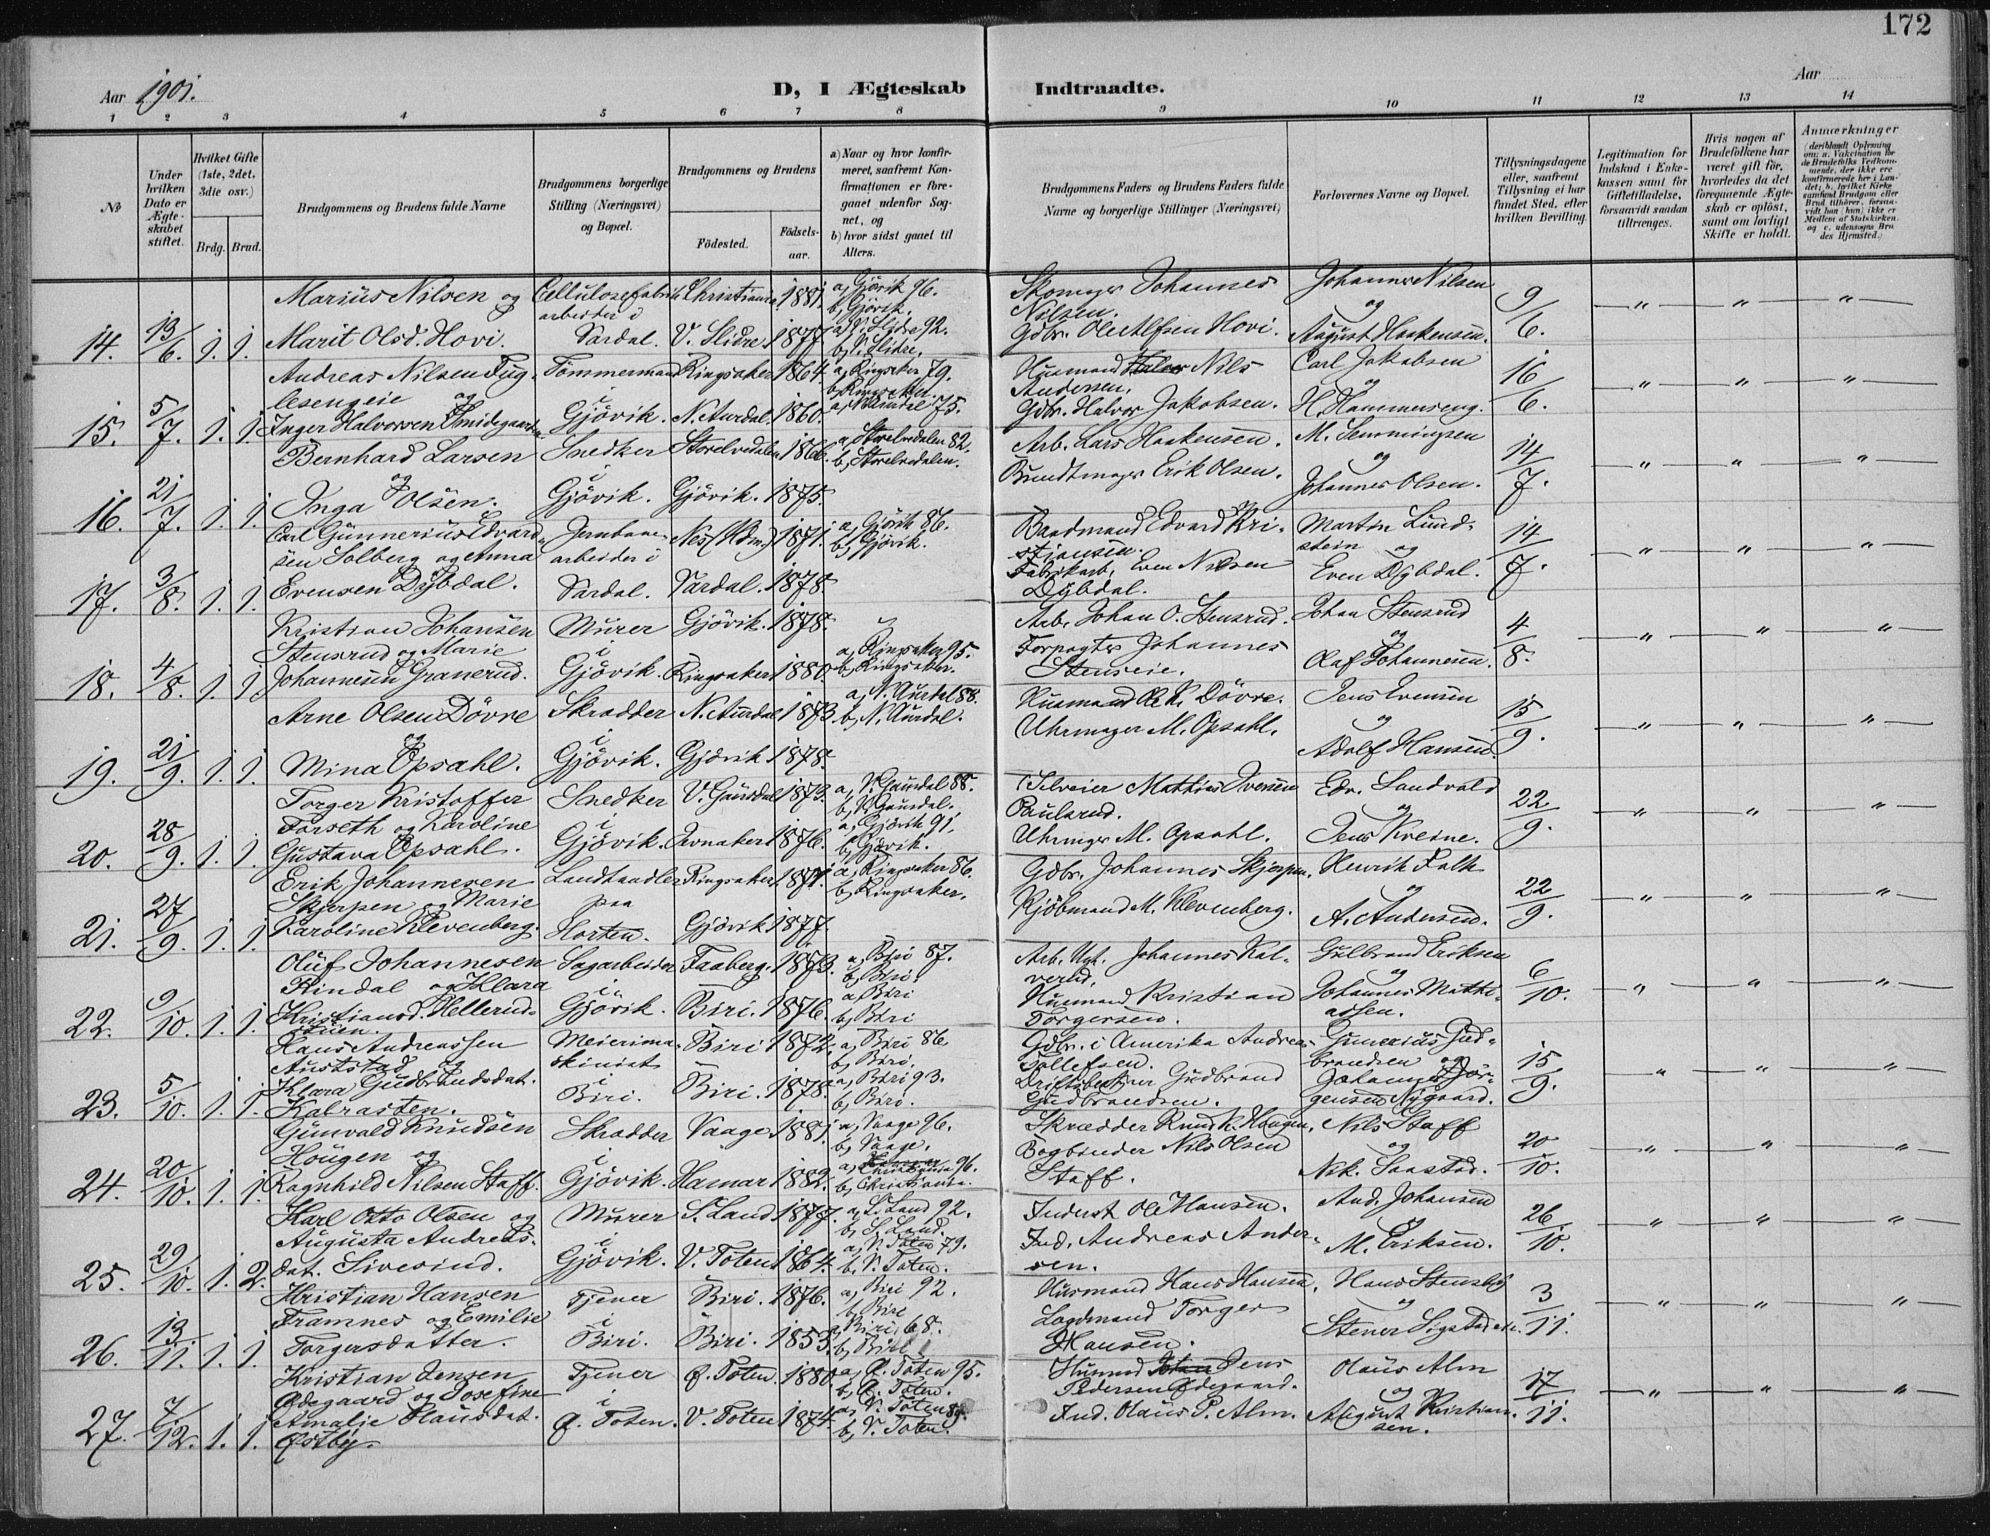 172
Aar 1901.
D, I Ægteskab Indtraadte.
Aar
1 2 3 4 5 6 7 8 9 10 11 12 13 14
No
Under hvilken Dato er Ægteskabet stiftet.
Hvilket Gifte (1ste, 2det, 3die osv.)
Brdg. Brud.
Brudgommens og Brudens fulde Navne
Brudgommens borgerlige Stilling (Næringsvei) og Bopæl.
Brudgommens og Brudens
Födested. Födsels-aar.
a) Naar og hvor konfirmeret, saafremt Konfirmationen er foregaaet udenfor Sognet, og
b) hvor sidst gaaet til Alters.
Brudgommens Faders og Brudens Faders fulde Navne og borgerlige Stillinger (Næringsvei)
Forlovernes Navne og Bopæl.
Tillysningsdagene eller, saafremt Tillysning ei har fundet Sted, efter hvilken Bevilling.
Legitimation for Indskud i Enkekassen samt for Giftetilladelse, forsaavidt saadan tiltrænges.
Hvis nogen af Brudefolkene har været gift før, hvorledes da det foregaaende Ægteskab er opløst, samt om lovligt Skifte er holdt.
Anmærkninger
(deriblandt Oplysning om: a. Vakcination for de Brudefolks Vedkommende, der ikke ere konfirmerede her i Landet; b. hvilket Kirkesamfund Brudgom eller Brud tilhører, forsaavidt han (hun) ikke er Medlem af Statskirken, og c. udensogns Brudes Hjemsted.)
14. 13/6. 1. 1. Marius Nilsen og Cellulosefabrik Christiania 1881. a, Gjövik 96. Skomager Johannes Johannes Nilsen 9/6.
arbeider i b, Gjövik. Nilsen. og
Marit Olsd. Hovi. Vardal. V. Slidre. 1877. a, V. Slidre 92. Gdbr. Ole Alfsen Hovi. August Haakensen.
b, V. Slidre.
15. 5/7. 1. 1. Andreas Nilsen Fug- Tømmermand Ringsaker 1864. a, Ringsaker 79. Husmand Nils Carl Jakobsen 16/6.
lesengeie og i b, Ringsaker. Andersen. og
Inger Halvorsen Smidegaarden Gjövik. N. Aurdal. 1860. a, N. Aurdal 75. Gdbr. Halvor Jakobsen. H. Hammerseng.
16. 21/7. 1. 1. Bernhard Larsen Snedker Storelvedalen 1866. a, Storelvedalen 82. Arb. Lars Haakensen. M. Semmingsen 14/7.
og i b, Storelvedalen. Bundtmager Erik Olsen. og
Inga Olsen. Gjövik. Gjövik. 1875. Johannes Olsen.
17. 3/8. 1. 1. Carl Gunnerius Edvard- Jernbane- Nes (Hdm.) 1871. a, Gjövik 86. Baadmand Edvard Kri- Martin Lund- 14/7.
sen Solberg og Anna arbeider i b, Gjövik. stiansen. stein og
Evensen Dybdal. Vardal. Vardal. 1878. Fabrikarb. Even Nilsen Even Dybdal.
Dybdal.
18. 4/8. 1. 1. Kristian Johansen Murer Gjövik. 1878. Arb. Johan O. Stensrud. Johan Stensrud 4/8.
Stensrud og Marie i a, Ringsaker 95. Forpagter Johannes og
Johannesen Granerud. Gjövik. Ringsaker 1880. b, Ringsaker. Stenseie. Olaf Johannesen.
19. 21/9. 1. 1. Arne Olsen Dövre Skrædder N. Aurdal 1873. a, N. Aurdal 88. Husmand O. K. Dövre. Jens Evensen 15/9.
og i b, N. Aurdal. Uhrmager M. Opsahl. og
Mina Opsahl. Gjövik. Gjövik 1878. Adolf Hansen.
20. 28/9. 1. 1. Torger Kristoffer Snedker V. Gausdal 1873. a, V. Gausdal 88. Selveier Mathias Iversen Edv. Sandvold 22/9.
Forseth og Karoline i b, V. Gausdal. Paulsrud. og
Gustava Opsahl. Gjövik. Jevnaker 1876. a, Gjövik 91. Uhrmager M. Opsahl. Jens Kreine.
b, Gjövik.
21. 27/9. 1. 1. Erik Johannesen Landhandler Ringsaker 1871. a, Ringsaker 86. Gdbr. Johannes Skjerpen. Henrik Falk 22/9.
Skjerpen og Marie paa b, Ringsaker. Kjöbmand M. Klevenberg. og
Karoline Klevenberg. Horten. Gjövik 1877. A. Andersen.
22. 9/10. 1. 1. Oluf Johannesen Sagarbeider Faaberg. 1873. a, Biri 87. Arb. Ugt. Johannes Kal- Gulbrand Eriksen 6/10.
Rindal og Klara i b, Biri. verud. og
Kristiansd. Hellerud- Gjövik. Biri. 1876. a, Biri Husmand Kristian Johannes Mathi-
stuen. b, Biri Torgersen. assen.
23. 5/10. 1. 1. Hans Andreassen Meierima- Biri 1872. a, Biri 86 Gdbr. i Amerika Andreas Gunerius Gud- 15/9.
Auststad og skinist b, Biri. Tollefsen. brandsen og
Klara Gudbrandsdat. i Biri. Biri. 1878. a, Biri 93. Driftsbestyrer Gudbrand Johannes Jör-
Kalrasten. b, Biri. Gudbrandsen. gensen Nygaard.
24. 20/10. 1. 1. Gunvald Knudsen Skrædder Vaage 1881. a, Vaage 96. Skrædder Knud K. Hougen. Nils Staff 20/10.
Hougen og i b, Vaage. Bogbinder Nils Olsen og
Ragnhild Nilsen Staff. Gjövik. Hamar 1882. a, Christiania 96. Staff. Nik. Saastad.
b, Christiania.
25. 29/10. 1. 2. Karl Otto Olsen og Murer S. Land 1877. a, S. Land 92. Inderst Ole Hansen. And. Johansen 26/10.
Augusta Andreas- i b, S. Land. Ind. Andreas Ander- og
dat. Sivesind. Gjövik. V. Toten 1864. a, V. Toten 79. sen. M. Eriksen.
b, V. Toten.
26. 13/11. 1. 1. Kristian Hansen Tjener Biri. 1876. a, Biri 92. Husmand Hans Hansen. Hans Stensby 3/11.
Framnes og Emilie i b, Biri Lægdmand Torger og
Torgersdatter. Biri. Biri. 1853. a, Biri 68. Hansen. Stener
b, Biri.
27. 7/12. 1. 1. Kristian Jensen Tjener Ø. Toten. 1880. a, Ø. Toten 95. Husmd Jens Olaus Alm 17/11.
Ødegaard og Josefine i b, Ø. Toten. Pedersen Ødegaard. og
Amalie Olausdat. Ø. Toten. V. Toten 1874. a, V. Toten 89. Ind. Olaus P. Alm. August Kristian-
Østby. b, V. Toten. sen.